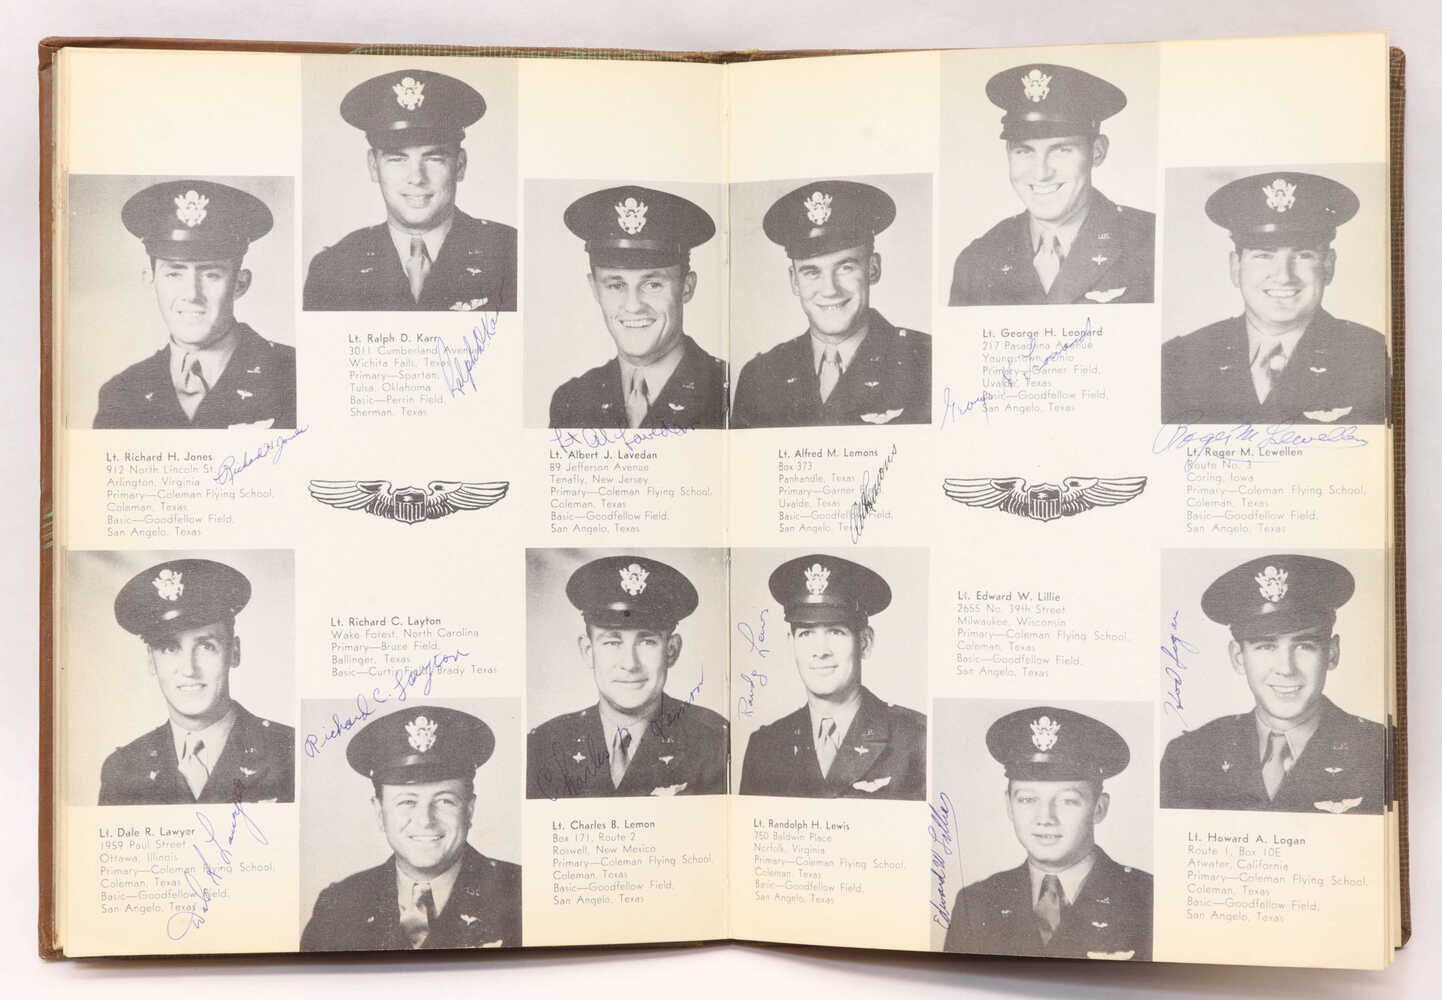 Lt. Ralph D. Karr
3011 Cumberland Avenue
Wichita Falls, Texas
Primary—Spartan,
Tulsa, Oklahoma
Basic—Perrin Field,
Sherman, Texas
Ralph D Karr
Lt. Richard H. Jones
912 North Lincoln St.
Arlington, Virginia
Primary—Coleman Flying School,
Coleman, Texas
Basic—Goodfellow Field,
San Angelo, Texas
Richard H Jones
Lt Al Lavedan
Lt. Albert J. Lavedan
89 Jefferson Avenue
Tenafly, New Jersey
Primary—Coleman Flying School,
Coleman, Texas
Basic—Goodfellow Field,
San Angelo, Texas
Lt. Richard C. Layton
Wake Forest, North Carolina
Primary—Bruce Field,
Ballinger, Texas
Basic—Curtis Field, Brady Texas
Richard C. Layton
Lt. Dale R. Lawyer
1959 Paul Street
Ottawa, Illinois
Primary—Coleman Flying School,
Coleman, Texas
Basic—Goodfellow Field,
San Angelo, Texas
Dale R Lawyer
Charles B Lemon
Lt. Charles B. Lemon
Box 171, Route 2
Roswell, New Mexico
Primary—Coleman Flying School,
Coleman, Texas
Basic—Goodfellow Field,
San Angelo, Texas
Lt. George H. Leonard
217 Pasadena Avenue
Youngstown, Ohio
Primary—Garner Field,
Uvalde, Texas
Basic—Goodfellow Field,
San Angelo, Texas
George H Leonard
Lt. Alfred M. Lemons
Box 373
Panhandle, Texas
Primary—Garner
Uvalde, Texas
Basic—Goodfellow Field,
San Angelo, Texas
Lemons
Roger M Lewellen
Lt. Roger M. Lewellen
Route No. 3
Coring, Iowa
Primary—Coleman Flying School,
Coleman, Texas
Basic—Goodfellow Field,
San Angelo, Texas
Lt. Edward W. Lillie
2655 No. 39th Street
Milwaukee, Wisconsin
Primary—Coleman Flying School,
Coleman, Texas
Basic—Goodfellow Field,
San Angelo, Texas
Edward W Lillie
Randy Lewis
Lt. Randolph H. Lewis
750 Baldwin Place
Norfolk, Virginia
Primary—Coleman Flying School,
Coleman, Texas
Basic—Goodfellow Field,
San Angelo, Texas
Logan
Lt. Howard A. Logan
Route 1, Box 10E
Atwater, California
Primary—Coleman Flying School,
Coleman, Texas
Basic—Goodfellow Field,
San Angelo, Texas